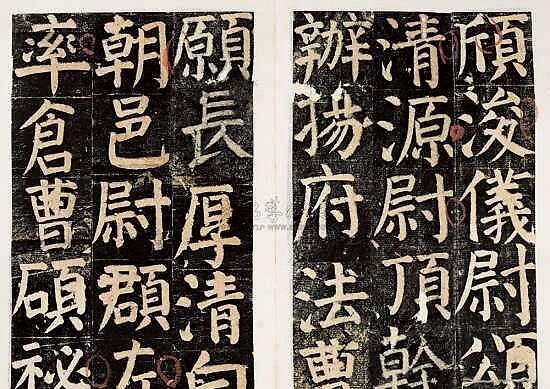 頎浚儀尉頌
清源尉頂幹
辦揚府法曹
願長厚清白
朝邑尉頵左
率倉曹碩祕